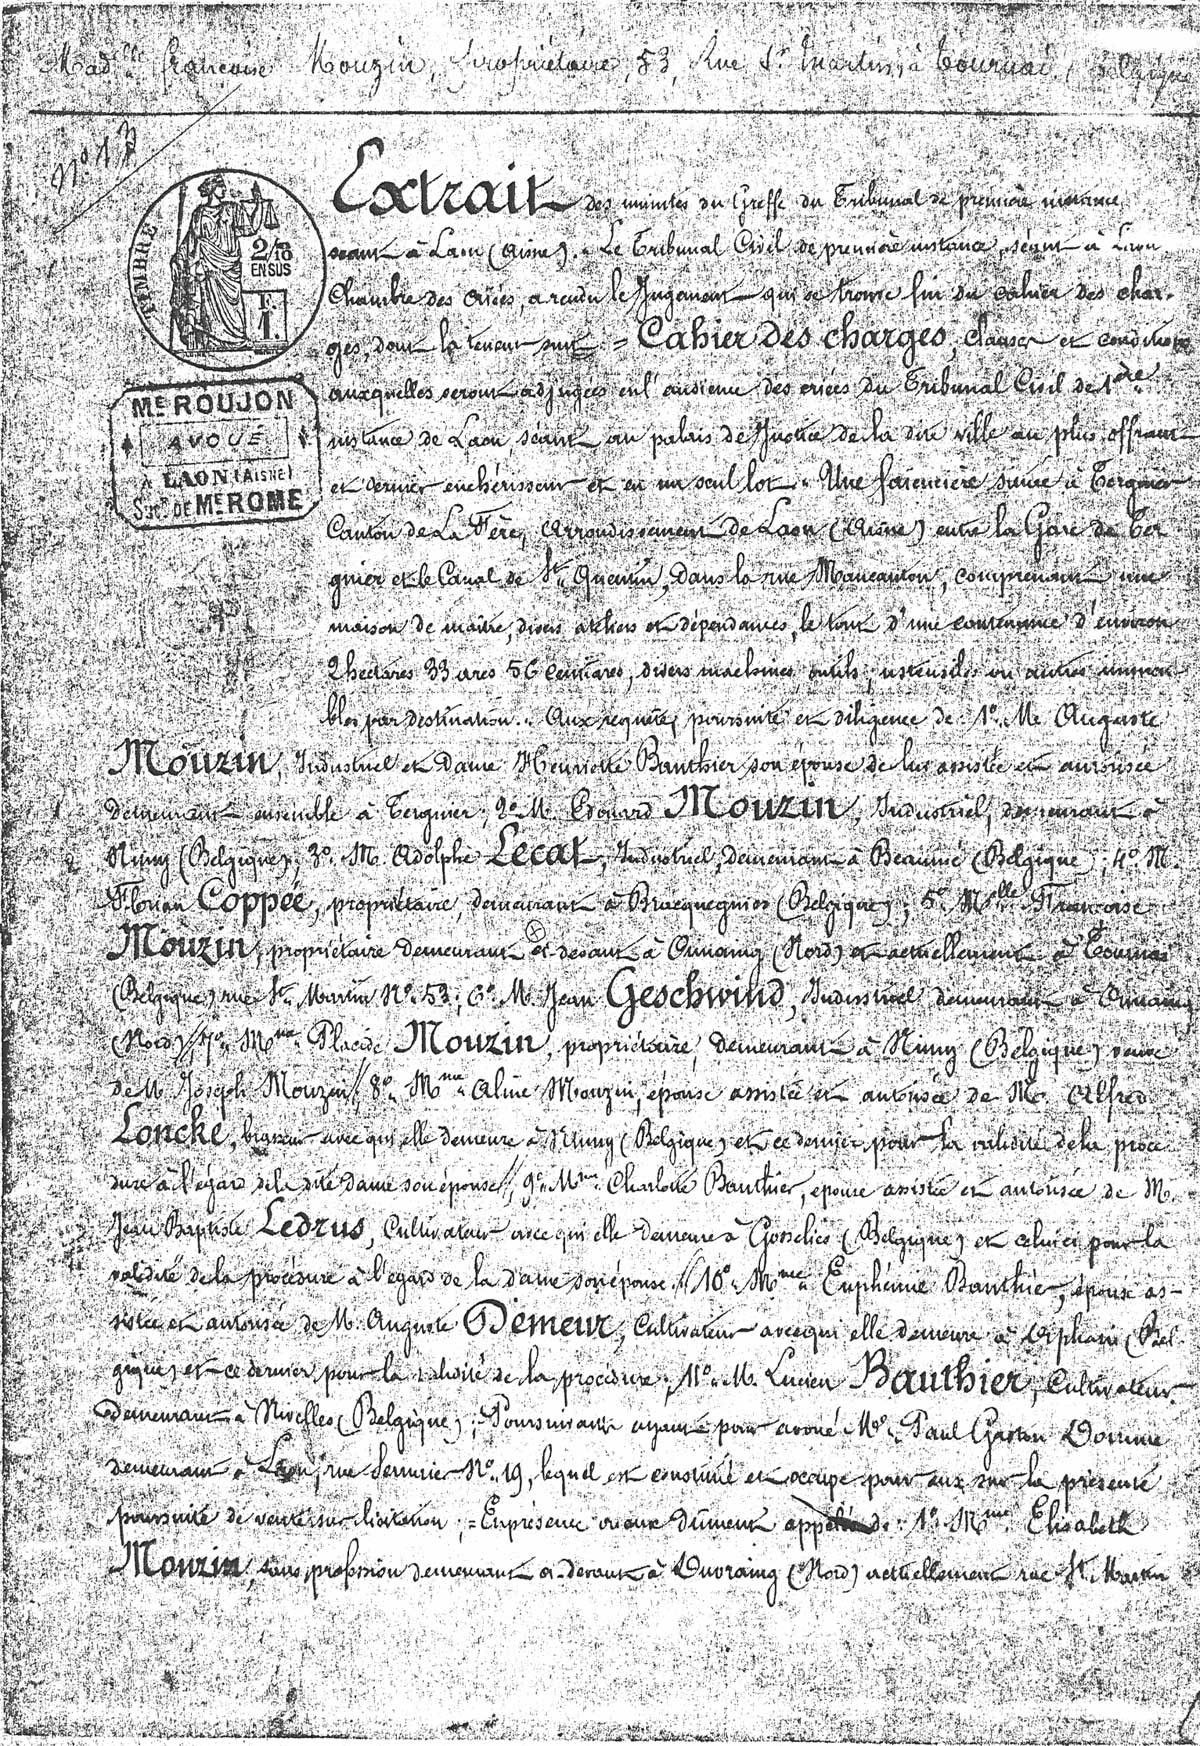 Mad.elle Françoise Mouzin, propriétaire, 53, Rue St Martin, à Tournai, Belgique
N° 13
TIMBRE
2/10
EN SUS
F.
1.
ME ROUJON
AVOUÉ
À LAON (AISNE)
SUCR DE ME ROME
Extrait des minutes du Greffe du Tribunal de première instance,
séant à Laon (Aisne). = Le Tribunal Civil de première instance, séant à Laon
Chambre des criées, a rendu le Jugement qui se trouve fin du cahier des char-
ges, dont la teneur suit. = Cahier des charges, clauses et conditions
auxquelles seront adjugées en l'audience des criées du Tribunal Civil de 1ère
instance de Laon, séant au palais de Justice de la dite ville au plus offrant
et dernier enchérisseur et en un seul lot = Une faïencière située à Tergnier
Canton de La Fère, Arrondissement de Laon (Aisne) entre la Gare de Ter
gnier et le Canal de St Quentin, dans la rue comprenant une
maison de maître, divers ateliers et dépendances, le tout d'une contenance d'environ
2 hectares 33 ares 56 centiares, divers machines outils, ustensiles ou autres immeu-
bles par destination. = Aux requête, poursuite et diligence de: 1° M. Auguste
Mouzin, Industriel et dame Henriette Bauthier son épouse de lui assistée et autorisée
demeurant ensemble à Tergnier; 2° M. Edouard Mouzin, Industriel, demeurant à
Nimy (Belgique); 3° M. Adolphe Lecat, Industriel, demeurant à (Belgique); 4° M.
Florian Coppée, propriétaire, demeurant à Bracquegnies (Belgique); 5° Melle Françoise
Mouzin, propriétaire demeurant ci-devant à Onnaing (Nord) et actuellement à Tournai
(Belgique) rue St Martin N° 53; 6° M. Jean Geschwind, Industriel demeurant à Onnaing
(Nord) // 7° Mme Placide Mouzin, propriétaire, demeurant à Nimy (Belgique) veuve
de M. Joseph Mouzin // 8° Mme Aline Mouzin, épouse assistée et autorisée de M. Alfred
Loncke, brasseur avec qui elle demeure à Nimy (Belgique) et ce dernier pour la validité de la procé
dure à l'égard de la dite dame son épouse // 9° Mme Charlotte Bauthier, épouse assistée et autorisée de M.
Jean Baptiste Ledrus, Cultivateur avec qui elle demeure à Gosselies (Belgique) et celui ci pour la
validité de la procédure à l'égard de la dame son épouse // 10° Mme Euphémie Bauthier, épouse as-
sistée et autorisée de M. Auguste Demeur, Cultivateur avec qui elle demeure à (Bel-
gique) et ce dernier pour la validité de la procédure; 11° M. Lucien Bauthier, Cultivateur
demeurant à Nivelles (Belgique); Poursuivant ayant pour avoué Me Paul Gaston
demeurant à Laon, rue Serurier N° 19, lequel est constitué et occupe pour eux sur la présente
poursuite de vente sur licitation; = En présence ou eux dûment appelés de: 1° Mme Elisabeth
Mouzin, sans profession demeurant ci-devant à (Nord) actuellement rue St Martin